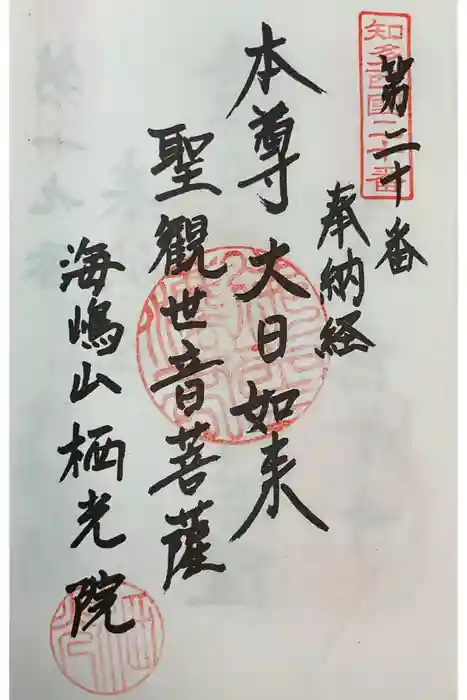 知多四国二十番
第二十番
奉納経
本尊 大日如来
聖観世音菩薩
海嶋山 栖光院